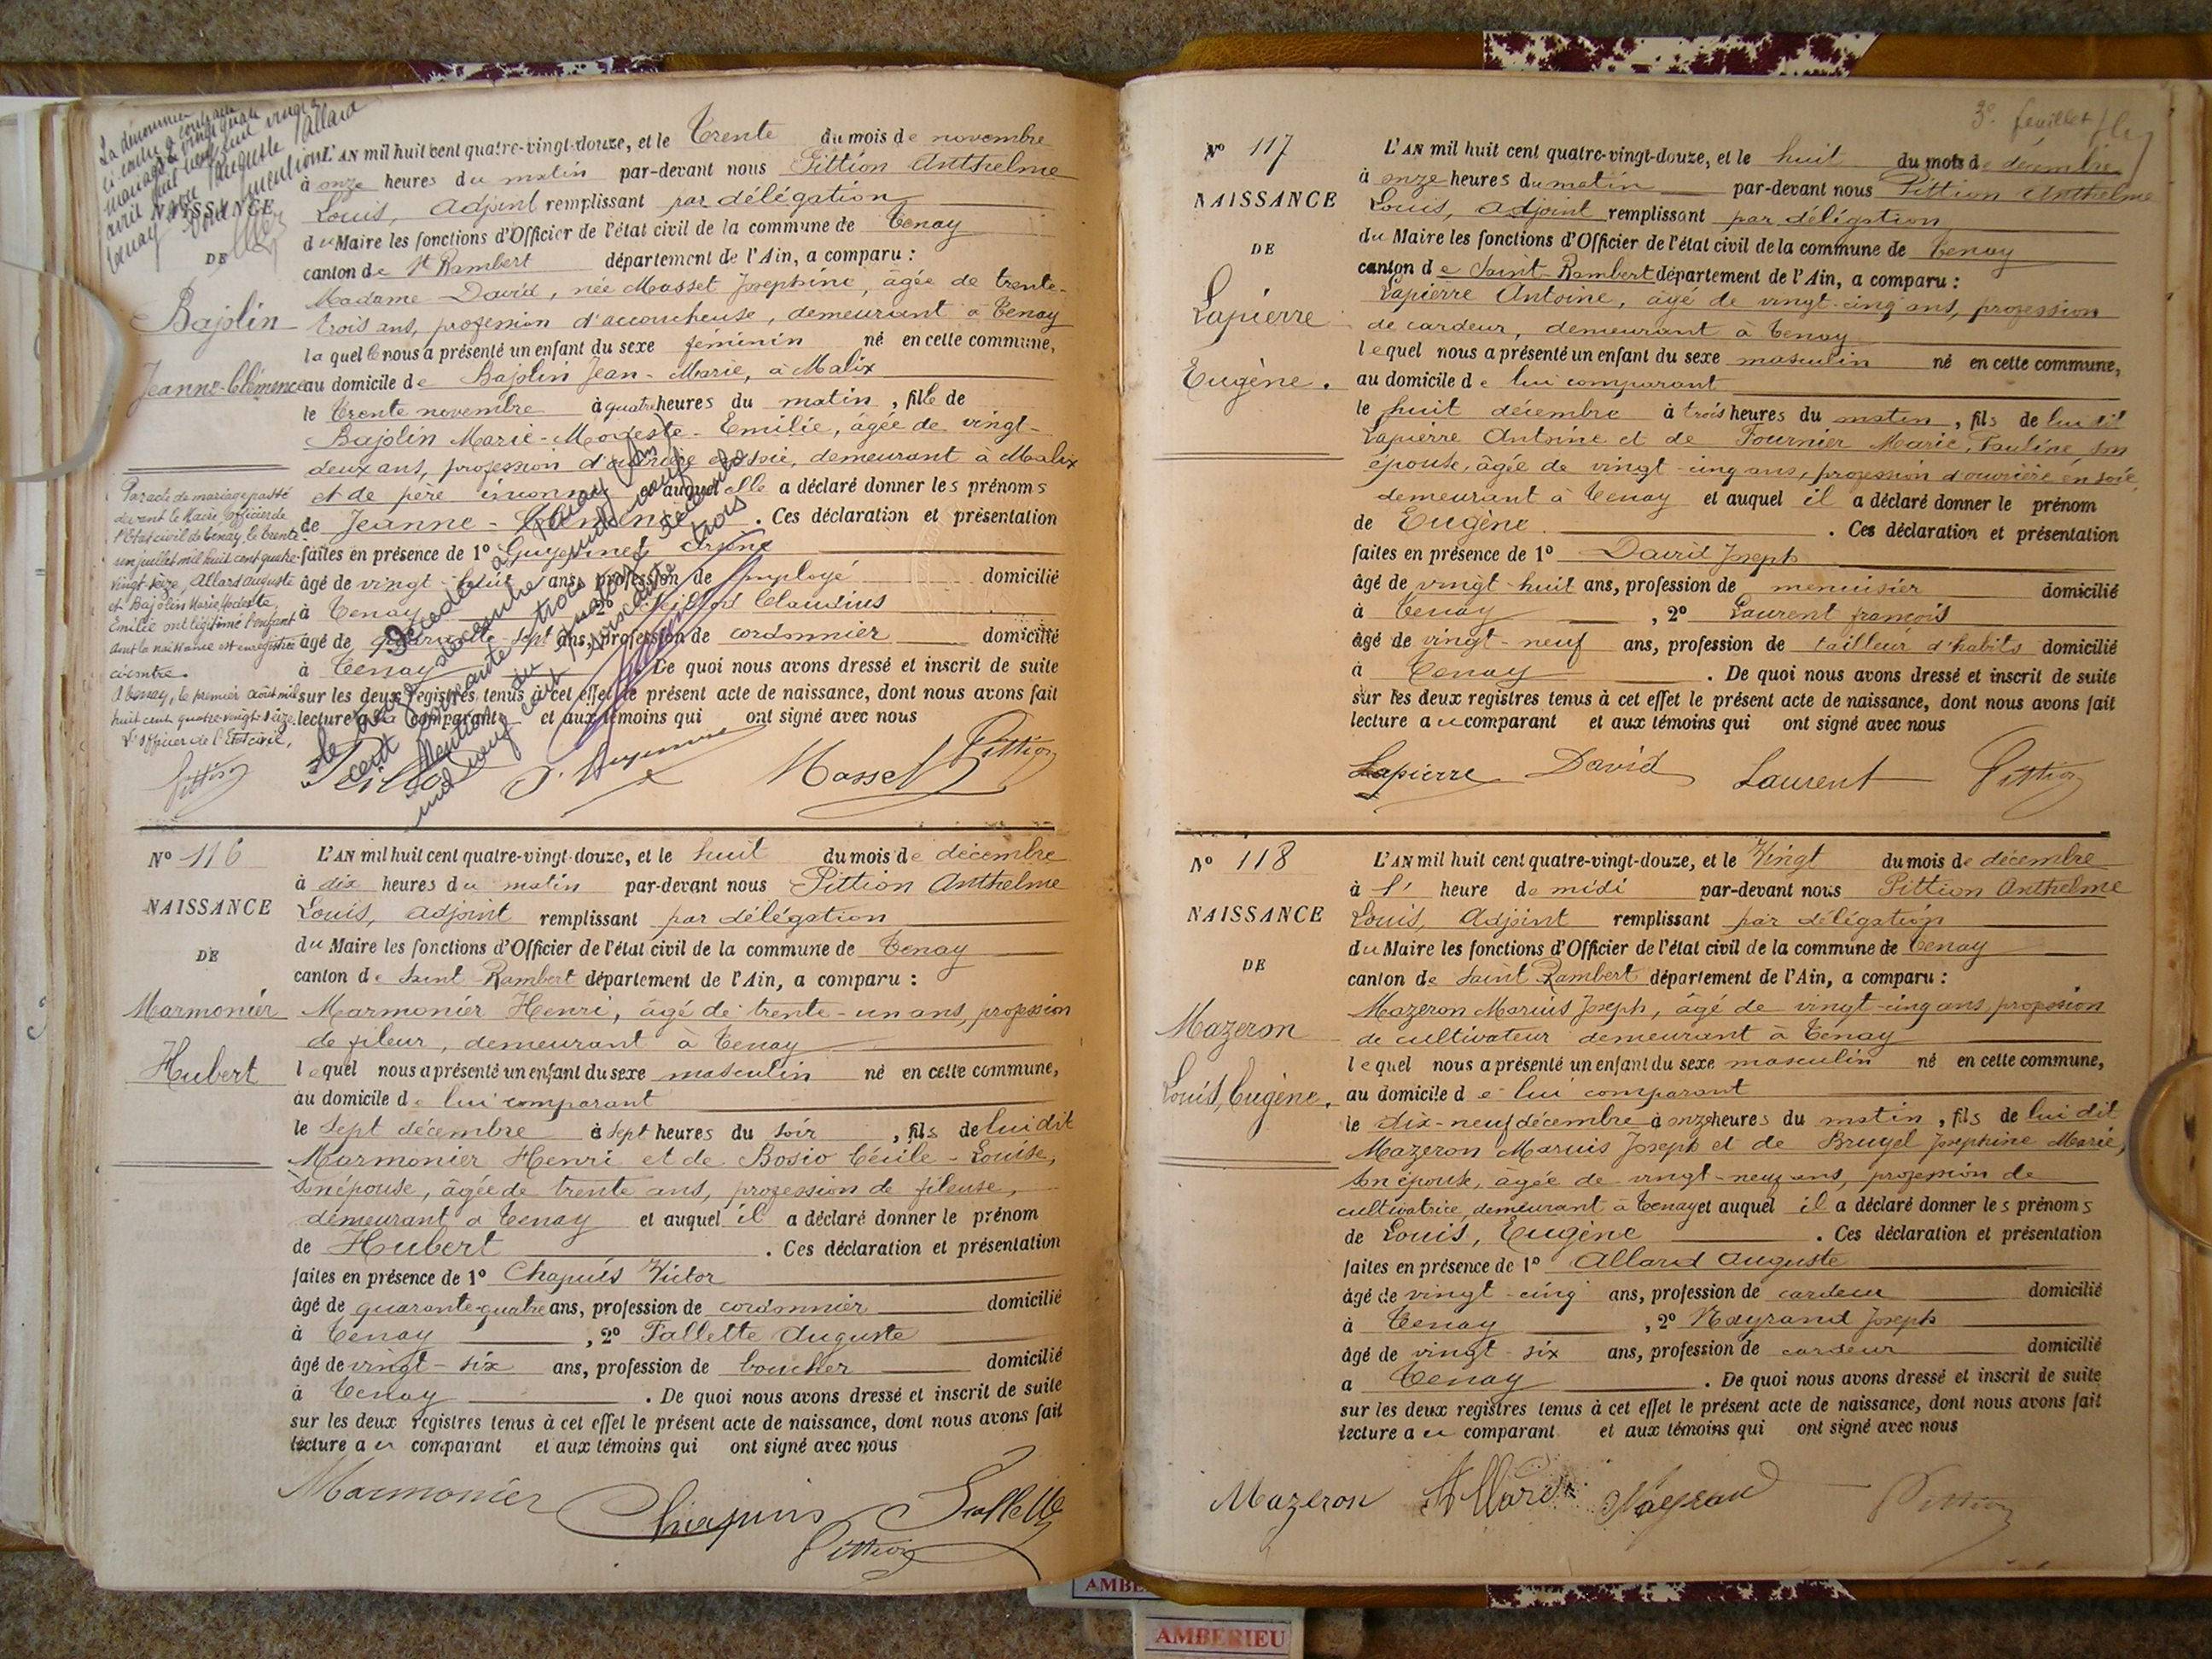 La dénommée
ci contre a contracté
mariage à
Tenay avec Auguste Allard
Dont mention
L'AN mil huit cent quatre-vingt-douze, et le Trente du mois de novembre
à onze heures du matin par-devant nous Pittion Anthelme
NAISSANCE
Louis, Adjoint remplissant par délégation
du Maire les fonctions d'Officier de l'état civil de la commune de Tenay
DE
canton de St Rambert département de l'Ain, a comparu :
Madame David, née Masset Josephine, âgée de trente-
Bajolin
trois ans, profession d'accoucheuse, demeurant à Tenay
laquelle nous a présenté un enfant du sexe féminin né en cette commune,
Jeanne-Clémence
au domicile de Bajolin Jean-Marie, à Malix
le Trente novembre à quatre heures du matin, fille de
Bajolin Marie-Modeste-Emilie, âgée de vingt-
deux ans, profession d'ouvrière en soie, demeurant à Malix
et de père inconnu et auquel elle a déclaré donner les prénoms
de Jeanne-Clémence. Ces déclaration et présentation
faites en présence de 1° Guyennet
âgé de vingt-huit ans, profession de employé domicilié
à Tenay, 2° Peillod Claudius
âgé de quarante-sept ans, profession de cordonnier domicilié
à Tenay. De quoi nous avons dressé et inscrit de suite
sur les deux registres tenus à cet effet le présent acte de naissance, dont nous avons fait
lecture à la comparante et aux témoins qui ont signé avec nous
Par acte de mariage passé
devant le Maire Officier de
l'Etat civil de Tenay, le trente-
un juillet mil huit cent quatre-
vingt-seize, Allard Auguste
et Bajolin Marie, Modeste,
Emilie ont légitimé l'enfant
dont la naissance est enregistrée
ci-contre.
A Tenay, le premier août mil
huit cent quatre-vingt-seize.
L'Officier de l'Etat civil,
Pittion
Décédée à Tenay (Ain)
le trois décembre mil neuf
cent soixante trois
Mention du quatorze décembre
mil neuf cent soixante trois
Peillod Masset Pittion
N° 116
L'AN mil huit cent quatre-vingt-douze, et le huit du mois de décembre
à dix heures du matin par-devant nous Pittion Anthelme
NAISSANCE
Louis, Adjoint remplissant par délégation
du Maire les fonctions d'Officier de l'état civil de la commune de Tenay
DE
canton de Saint-Rambert département de l'Ain, a comparu :
Marmonier
Marmonier Henri, âgé de trente-un ans, profession
de fileur, demeurant à Tenay
Hubert
lequel nous a présenté un enfant du sexe masculin né en cette commune,
au domicile de lui comparant
le sept décembre à sept heures du soir, fils de lui dit
Marmonier Henri et de Bosio Cécile-Louise,
son épouse, âgée de trente ans, profession de fileuse,
demeurant à Tenay et auquel il a déclaré donner le prénom
de Hubert. Ces déclaration et présentation
faites en présence de 1° Chapuis Victor
âgé de quarante-quatre ans, profession de cordonnier domicilié
à Tenay, 2° Fallette Auguste
âgé de vingt-six ans, profession de boucher domicilié
à Tenay. De quoi nous avons dressé et inscrit de suite
sur les deux registres tenus à cet effet le présent acte de naissance, dont nous avons fait
lecture au comparant et aux témoins qui ont signé avec nous
Marmonier Chapuis Fallette
Pittion
3e feuillet
N° 117
L'AN mil huit cent quatre-vingt-douze, et le huit du mois de décembre
à onze heures du matin par-devant nous Pittion Anthelme
NAISSANCE
Louis, Adjoint remplissant par délégation
du Maire les fonctions d'Officier de l'état civil de la commune de Tenay
DE
canton de Saint-Rambert département de l'Ain, a comparu :
Lapierre
Lapierre Antoine, âgé de vingt-cinq ans, profession
de cardeur, demeurant à Tenay
lequel nous a présenté un enfant du sexe masculin né en cette commune,
Eugène.
au domicile de lui comparant
le huit décembre à trois heures du matin, fils de lui dit
Lapierre Antoine et de Fournier Marie, Pauline, son
épouse, âgée de vingt-cinq ans, profession d'ouvrière en soie,
demeurant à Tenay et auquel il a déclaré donner le prénom
de Eugène. Ces déclaration et présentation
faites en présence de 1° David Joseph
âgé de vingt-huit ans, profession de menuisier domicilié
à Tenay, 2° Laurent françois
âgé de vingt-neuf ans, profession de tailleur d'habits domicilié
à Tenay. De quoi nous avons dressé et inscrit de suite
sur les deux registres tenus à cet effet le présent acte de naissance, dont nous avons fait
lecture au comparant et aux témoins qui ont signé avec nous
Lapierre David Laurent Pittion
N° 118
L'AN mil huit cent quatre-vingt-douze, et le Vingt du mois de décembre
à l' heure de midi par-devant nous Pittion Anthelme
NAISSANCE
Louis, Adjoint remplissant par délégation
du Maire les fonctions d'Officier de l'état civil de la commune de Tenay
DE
canton de Saint Rambert département de l'Ain, a comparu :
Mazeron
Mazeron Marius Joseph, âgé de vingt-cinq ans, profession
de cultivateur demeurant à Tenay
lequel nous a présenté un enfant du sexe masculin né en cette commune,
Louis, Eugène.
au domicile de lui comparant
le dix-neuf décembre à onze heures du matin, fils de lui dit
Mazeron Marius Joseph et de Brugel Josephine Marie,
son épouse, âgée de vingt-neuf ans, profession de
cultivatrice, demeurant à Tenay et auquel il a déclaré donner les prénoms
de Louis, Eugène. Ces déclaration et présentation
faites en présence de 1° Allard Auguste
âgé de vingt-cinq ans, profession de cardeur domicilié
à Tenay, 2° Nayrand Joseph
âgé de vingt-six ans, profession de cardeur domicilié
à Tenay. De quoi nous avons dressé et inscrit de suite
sur les deux registres tenus à cet effet le présent acte de naissance, dont nous avons fait
lecture au comparant et aux témoins qui ont signé avec nous
Mazeron Allard Nayrand Pittion
AMBE
AMBERIEU